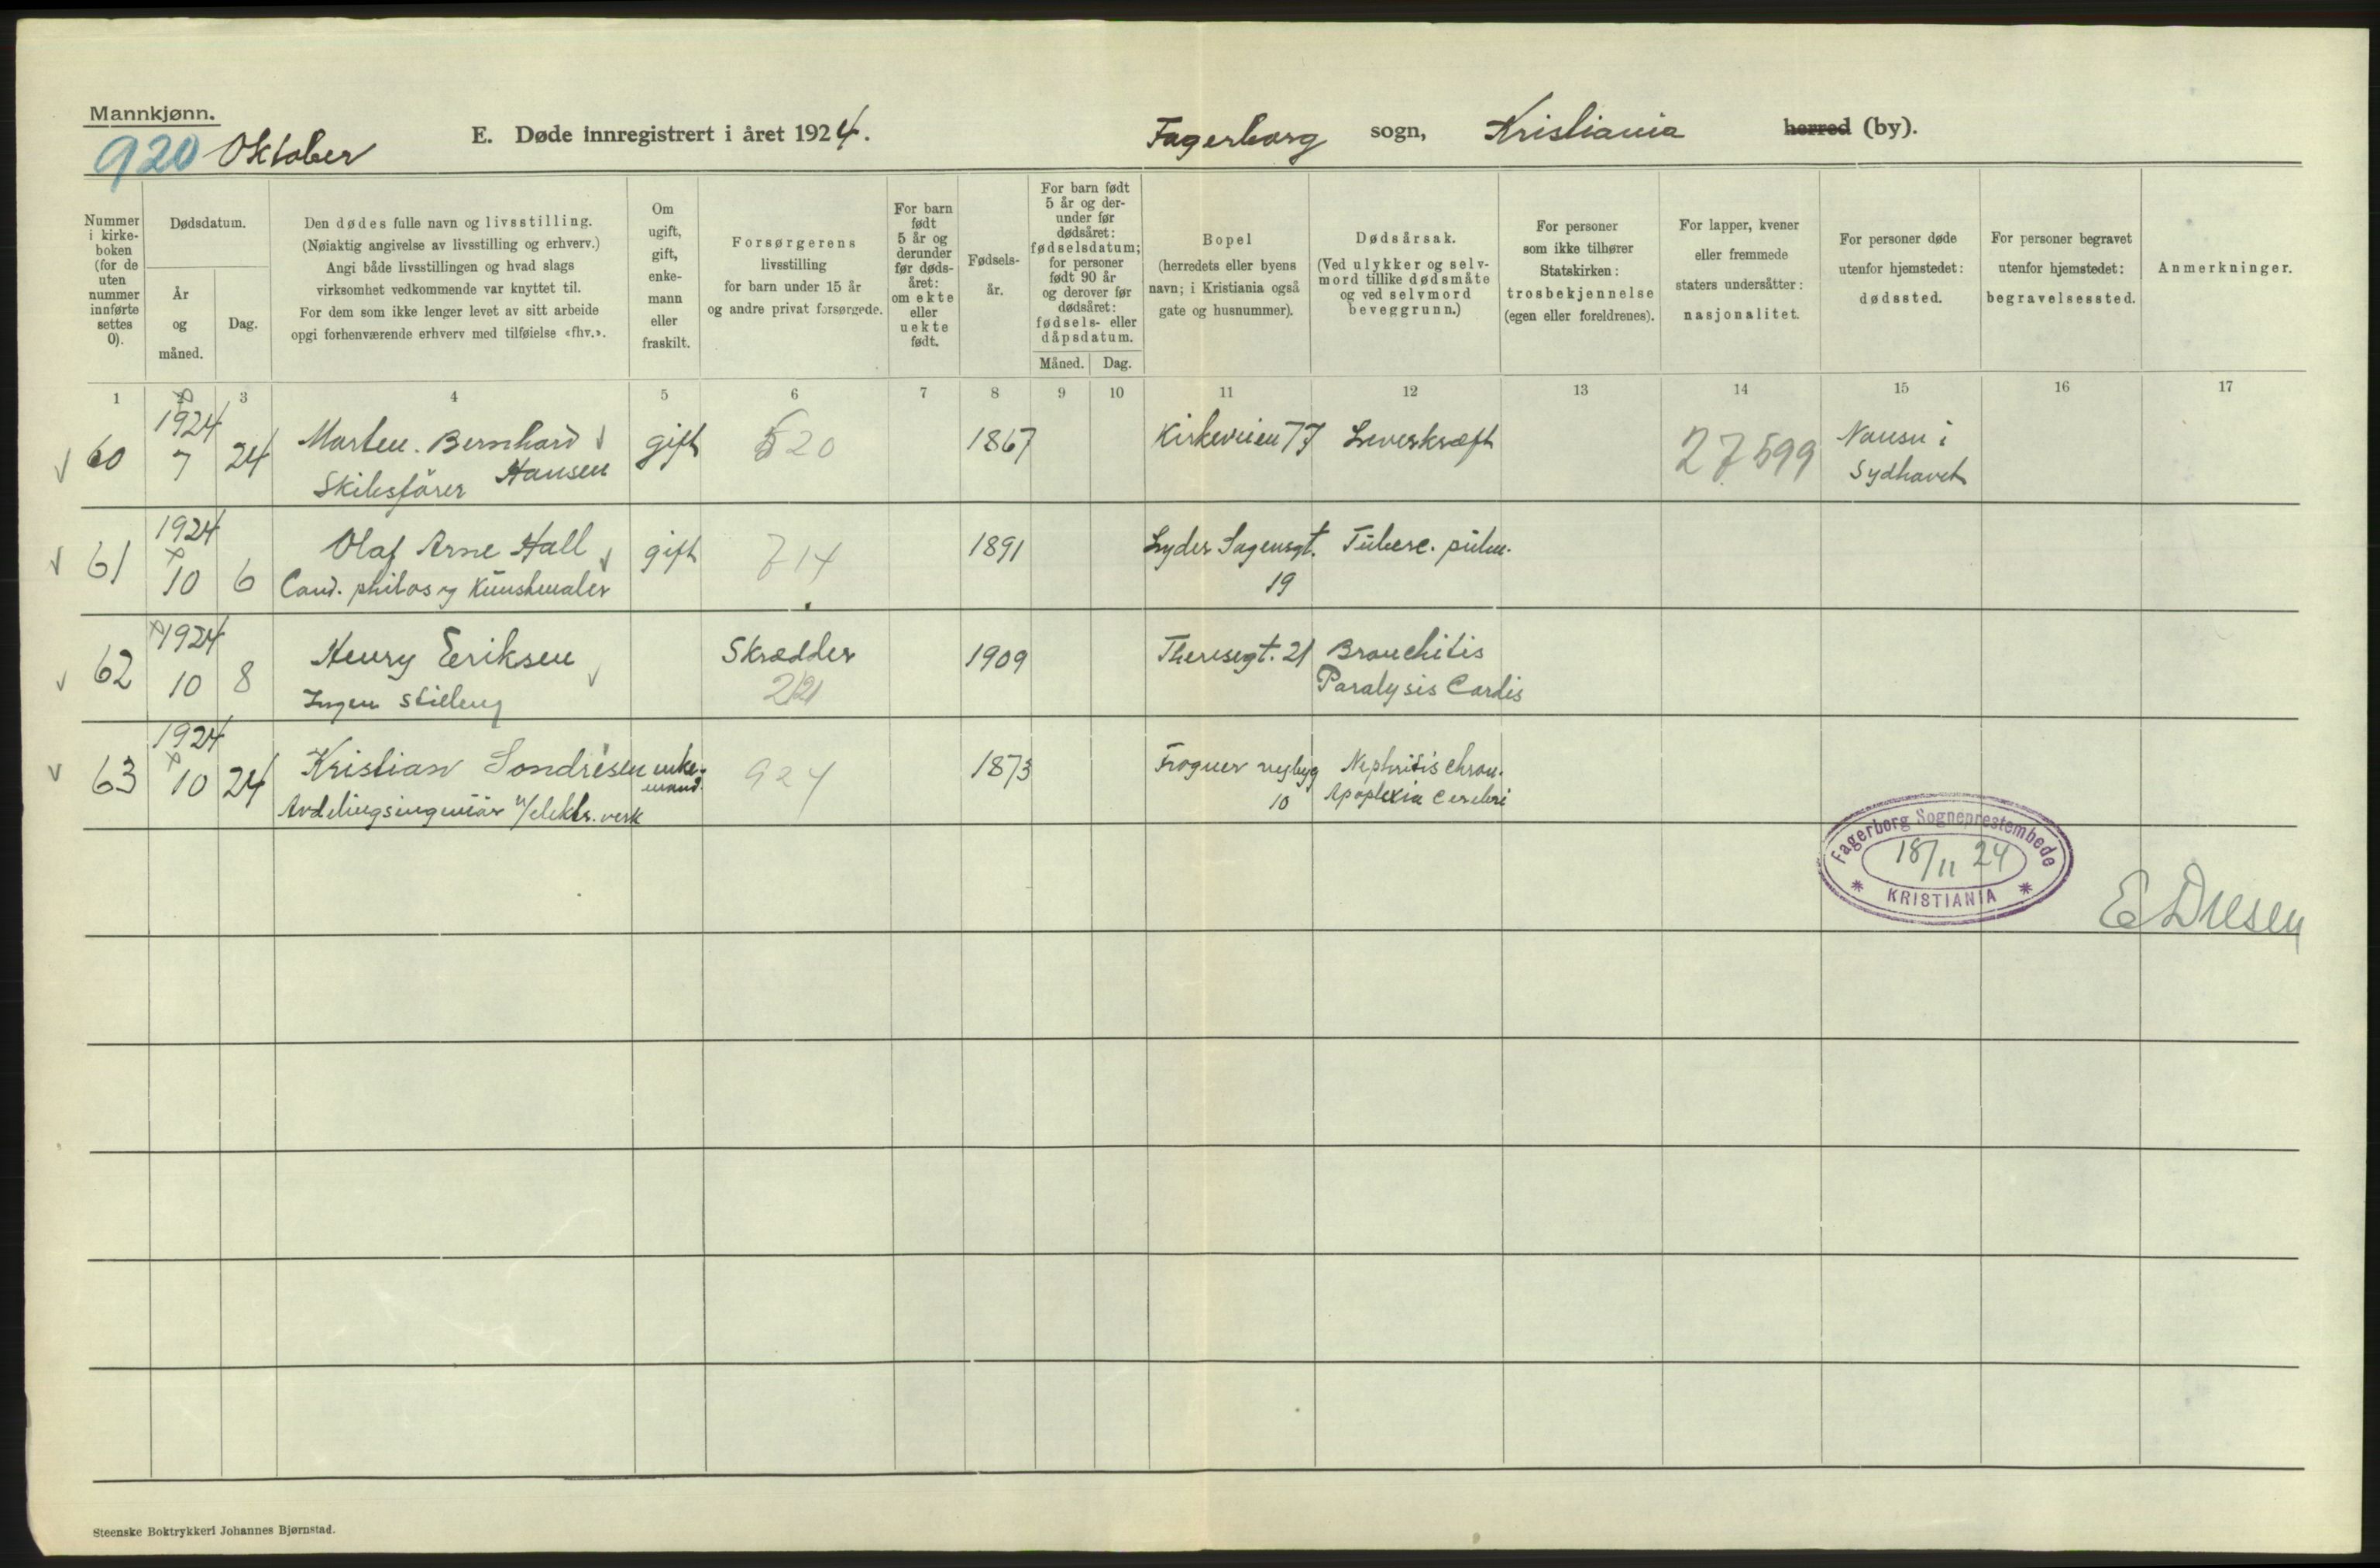 Mannkjønn.
920 Oktober
E. Døde innregistrert i året 1924.
Fagerborg sogn, Kristiania herred (by).
Nummer i kirke-boken (for de uten nummer innførte settes 0).
Dødsdatum.
År og måned.
Dag.
Den dødes fulle navn og livsstilling.
(Nøiaktig angivelse av livsstilling og erhverv.)
Angi både livsstillingen og hvad slags
virksomhet vedkommende var knyttet til.
For dem som ikke lenger levet av sitt arbeide
opgi forhenværende erhverv med tilføielse «fhv.».
Om ugift, gift, enke-mann eller fraskilt.
Forsørgerens
livsstilling
for barn under 15 år
og andre privat forsørgede.
For barn født 5 år og derunder før døds-året: om ekte eller uekte født.
Fødsels-år.
For barn født 5 år og der-under før dødsåret: fødselsdatum; for personer født 90 år og derover før dødsåret: fødsels- eller dåpsdatum.
Måned.
Dag.
Bopel
(herredets eller byens
navn; i Kristiania også
gate og husnummer).
Dødsårsak.
(Ved ulykker og selv-
mord tillike dødsmåte
og ved selvmord
beveggrunn.)
For personer
som ikke tilhører
Statskirken:
trosbekjennelse
(egen eller foreldrenes).
For lapper, kvener
eller fremmede
staters undersåtter:
nasjonalitet.
For personer døde
utenfor hjemstedet:
dødssted.
For personer begravet
utenfor hjemstedet:
begravelsessted.
Anmerkninger.
1 3 4 5 6 7 8 9 10 11 12 13 14 15 16 17
60 1924 7 24 Marten. Bernhard Hansen gift 520 1867 Kirkeveien 77 Leverkræft 27599 Nauru i
Skibsfører Sydhavet
61 1924 10 6 Olaf Arne Hall gift 714 1891 Lyder Sagensgt. 19 Tuberc. pulm.
Cand. philos og Kunstmaler
62 1924 10 8 Henry Eriksen Skrædder 1909 Theresegt. 21 Bronchitis
Ingen stilling 221 Paralysis Cordis
63 1924 10 24 Kristian Sondresen enke-mand. 924 1873 Frogner nybyg 10 Nephritis chron.
Avdelingsingeniør v/elektr. verk Apoplexia Cerebri
Fagerborg Sogneprestembede
18/11 24
KRISTIANIA
Steenske Boktrykkeri Johannes Bjørnstad.